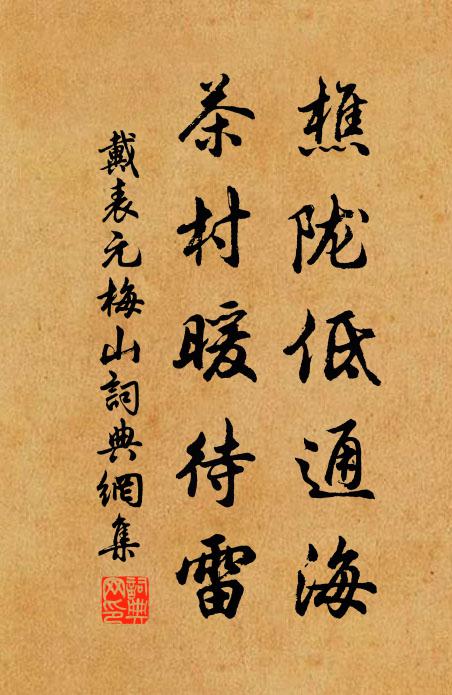 樵陇低通海
茶村暖待雷
戴表元梅山詞典網集
詞典
网印